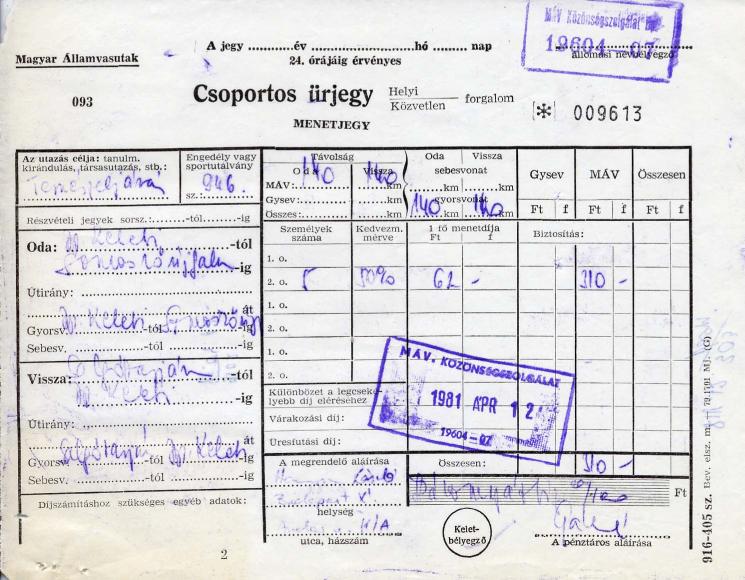 MÁV Közönségszolgálat
19604-07
A jegy ............év ..........................hó ......... nap
állomási névbélyegző
Magyar Államvasutak
24. órájáig érvényes
093
Csoportos űrjegy
Helyi
Közvetlen
forgalom
[*] 009613
MENETJEGY
Az utazás célja: tanulm. kirándulás, társasutazás, stb.:
Engedély vagy sportutalvány
sz.: 946
Távolság
Oda Vissza
140 140
MÁV: km km
Gysev: km km
Összes: km km
Oda Vissza
sebesvonat
km km
gyorsvonat
140 km 140 km
Gysev MÁV Összesen
Ft f Ft f Ft f
Részvételi jegyek sorsz.: -tól -ig
Személyek száma
Kedvezm. mérve
1 fő menetdíja
Ft f
Biztosítás:
Oda: Bp Keleti -tól
-ig
Útirány:
át
Gyorsv. Bp. Keleti -tól -ig
Sebesv. -tól -ig
1. o.
2. o. 5 50% 62 - 310 -
1. o.
2. o.
1. o.
2. o.
Vissza: -tól
Bp. Keleti -ig
Útirány:
át
Gyorsv. -tól Bp. Keleti -ig
Sebesv. -tól -ig
Különbözet a legcsekélyebb díj eléréséhez
Várakozási díj:
Üresfutási díj:
MÁV. KÖZÖNSÉGSZOLGÁLAT
1981 ÁPR 12
19604-07
A megrendelő aláírása
László
Budapest X.
helység
utca, házszám
Összesen: 310 -
Ft
Kelet-bélyegző
A pénztáros aláírása
Díjszámításhoz szükséges egyéb adatok:
2
916-405 sz. Bev. elsz. m. — 79.1791 MJ. (G)